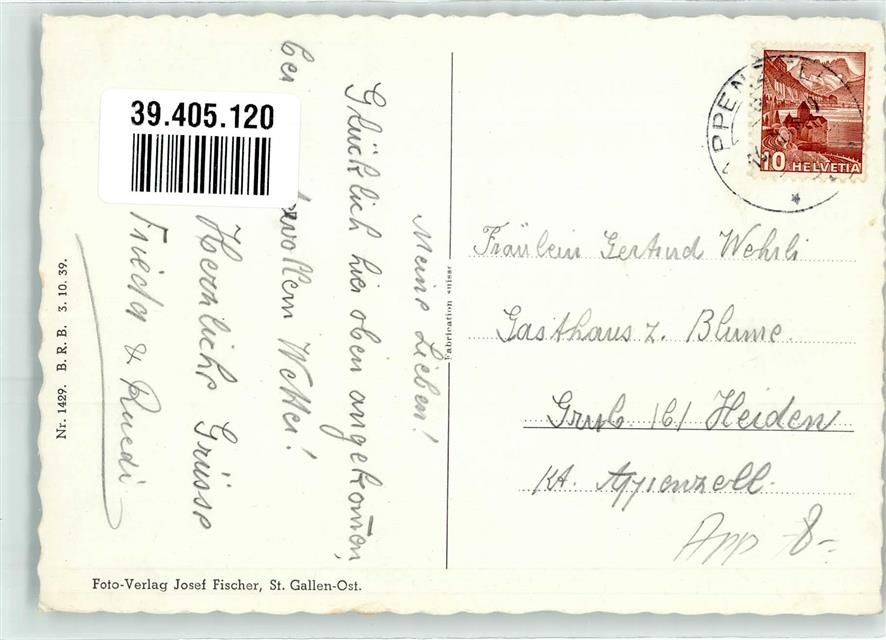 39.405.120
Meine Lieben!
Glücklich hier oben angekommen,
bei
Wetter!
Herzliche Grüsse
Frieda & Ruedi
Nr. 1429. B. R. B. 3. 10. 39.
Fabrication suisse
10 HELVETIA
Fräulein Gertrud Wehrli
Gasthaus z. Blume
Grub /b/ Heiden
Kt. Appenzell.
App 8-
Foto-Verlag Josef Fischer, St. Gallen-Ost.